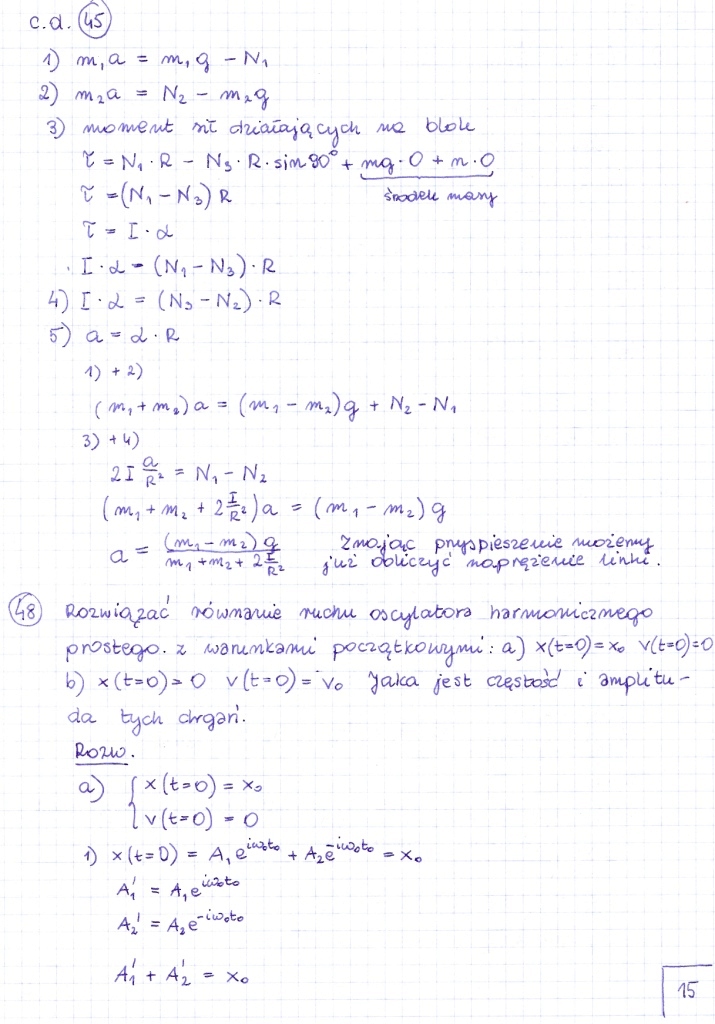 c.d. 45
1) m₁a = m₁g - N₁
2) m₂a = N₂ - m₂g
3) moment sił działających na blok
τ = N₁·R - N₃·R·sin90° + mg·0 + n·0
τ = (N₁ - N₃) R
środek masy
τ = I·α
I·α = (N₁ - N₃)·R
4) I·α = (N₃ - N₂)·R
5) a = α·R
1) + 2)
(m₁ + m₂) a = (m₁ - m₂)g + N₂ - N₁
3) + 4)
2I a/R² = N₁ - N₂
(m₁ + m₂ + 2 I/R²) a = (m₁ - m₂) g
a = (m₁ - m₂) g / m₁ + m₂ + 2 I/R²
Znając przyspieszenie możemy
już obliczyć naprężenie linki.
48 Rozwiązać równanie ruchu oscylatora harmonicznego
prostego. z warunkami początkowymi: a) x(t=0) = x₀ v(t=0)=0
b) x(t=0) = 0 v(t=0) = v₀ Jaka jest częstość i amplitu-
da tych drgań.
Rozw.
a) { x(t=0) = x₀
v(t=0) = 0
1) x(t=0) = A₁e^{iω₀t₀} + A₂e^{-iω₀t₀} = x₀
A₁' = A₁e^{iω₀t₀}
A₂' = A₂e^{-iω₀t₀}
A₁' + A₂' = x₀
15